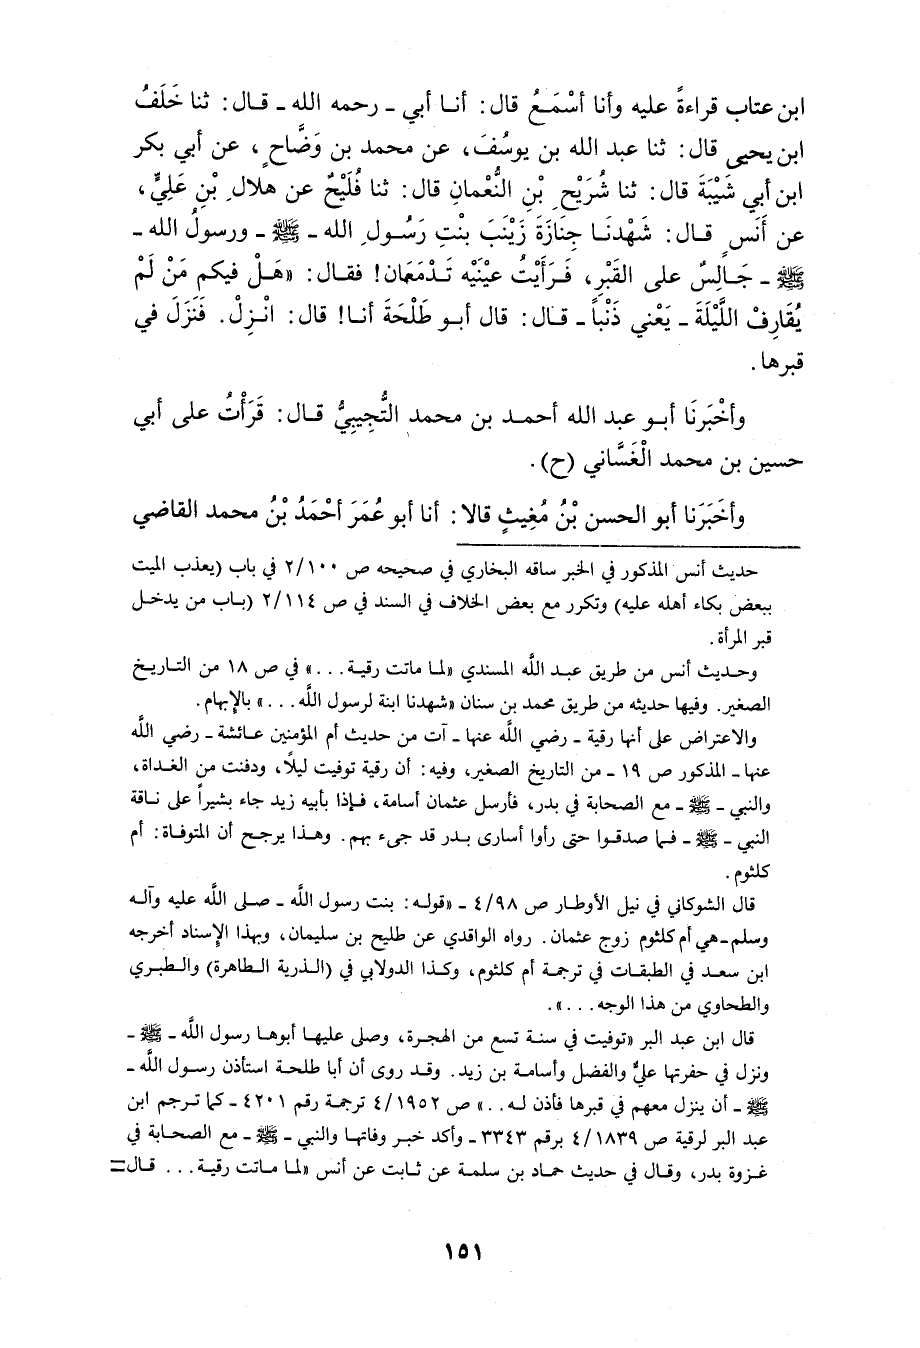 ابن عتاب قراءةً عليه وأنا أسْمَعُ قال: أنـا أبي ـ رحمه الله ـ قـال: ثنا خَلَفُ
ابن يحيى قال: ثنا عبد الله بن يوسُفَ، عن محمد بن وَضَّاحٍ، عن أبي بكر
ابن أبي شَيْبَةَ قال: ثنا شُرَيْحِ بْنِ النُّعْمانِ قال: ثنا فُلَيْحٌ عن هلالِ بْنِ عَلِيٍّ،
عن أَنَسٍ قـال: شَهْدنَـا جِنَازَةَ زَيْنَبَ بنْتِ رَسُـولِ الله ـ ﷺ ـ ورسولُ الله ـ
ﷺ ـ جَـالِسٌ على القَبْرِ، فَـرَأيْتُ عيْنَيْه تَـدْمَعَان! فقـال: «هَـلْ فيكم مَنْ لَمْ
يُقَارِفْ اللَّيْلَةَ ـ يَعْني ذَنْباً ـ قـال: قال أبـو طَلْحَةَ أنـا! قال: انْـزِلْ. فَنَزَلَ في
قبرها.
وأخْبَرنَا أبـو عبد الله أحمـد بن محمد التُّجيبِيُّ قـال: قَرَأْتُ على أبي
حسين بن محمد الْغَسَّاني (ح).
وأخَبَرَنا أبو الحسن بْنُ مُغِيثٍ قالا: أنا أبو عُمَرَ أحْمَدُ بْنُ محمد القاضي
حديث أنس المذكور في الخبر ساقه البخاري في صحيحه ص ٢/١٠٠ في باب (يعذب الميت
ببعض بكاء أهله عليه) وتكرر مع بعض الخلاف في السند في ص ٢/١١٤ (بـاب من يدخـل
قبر المرأة.
وحـديث أنس من طريق عبـد اللَّه المسندي «لمـا ماتت رقيـة...» في ص ١٨ من التـاريخ
الصغير. وفيها حديثه من طريق محمد بن سنان «شهدنا ابنة لرسول اللَّه...» بالإبهام.
والاعتراض على أنها رقية ـ رضي اللَّه عنها ـ آت من حديث أم المؤمنين عـائشة ـ رضي اللَّه
عنها ـ المذكور ص ١٩ ـ من التاريخ الصغير، وفيه: أن رقية توفيت ليلًا، ودفنت من الغـداة،
والنبي ـ ﷺ ـ مع الصحابة في بدر، فأرسل عثمان أسامة، فـإذا بأبيه زيد جاء بشيراً على نـاقة
النبي ـ ﷺ ـ فـما صدقـوا حتى رأوا أسارى بـدر قد جيء بهم. وهـذا يرجـح أن المتوفـاة: أم
كلثوم.
قال الشوكاني في نيل الأوطـار ص ٤/٩٨ ـ «قولـه: بنت رسول اللَّه ـ صـلى اللَّه عليه وآلـه
وسلم-هي أم كلثوم زوج عثمان. رواه الواقدي عن طليح بن سليمان، وبهذا الإسناد أخرجه
ابن سعـد في الطبقـات في ترجمـة أم كلثوم، وكـذا الدولابي في (الـذرية الـطاهرة) والـطبري
والطحاوي من هذا الوجه...».
قال ابن عبد البر «توفيت في سنـة تسع من الهجـرة، وصلى عليهـا أبوهـا رسول اللَّه ـ ﷺ ـ
ونزل في حفرتها عليٌّ والفضل وأسامة بن زيد. وقـد روى أن أبا طلحـة استأذن رسـول اللَّه ـ
ﷺ ـ أن ينزل معهم في قبرها فأذن لـه..» ص ٤/١٩٥٢ ترجمة رقم ٤٢٠١ ـ كما تـرجم ابن
عبد البر لرقية ص ٤/١٨٣٩ برقم ٣٣٤٣ ـ وأكد خبـر وفاتهـا والنبي ـ ﷺ ـ مع الصحـابة في
غـزوة بدر، وقـال في حديث حمـاد بن سلمـة عن ثـابت عن أنس «لمـا مـاتت رقيـة... قـال=
١٥١